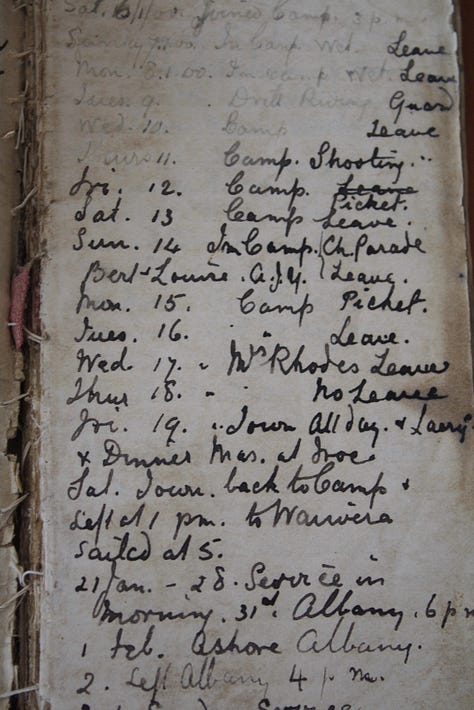 Sat. 6/1/00 Joined Camp. 3 p.m
Sunday 7.1.00. In Camp Wet. Leave
Mon. 8.1.00. In camp Wet. Leave
Tues. 9. Drill Riding Guard
Wed. 10. Camp Leave
Thurs 11. Camp. Shooting. "
Fri. 12. Camp. Leave Picket.
Sat. 13 Camp Leave.
Sun. 14 In Camp. Ch. Parade
Bert & Louire. A.J.Y. Leave.
Mon. 15. Camp Picket.
Tues. 16. " Leave.
Wed. 17. " Mrs Rhodes Leave
Thur 18. " No Leave
Fri. 19. " Town All day. &
& Dinner Mas. at
Sat. Town. back to Camp &
Left at 1 pm. to Waiwera
Sailed at 5.
21 Jan. - 28. Service in
morning. 31st. Albany. 6 pm
1 Feb. Ashore Albany.
2. Left Albany 4 p.m.